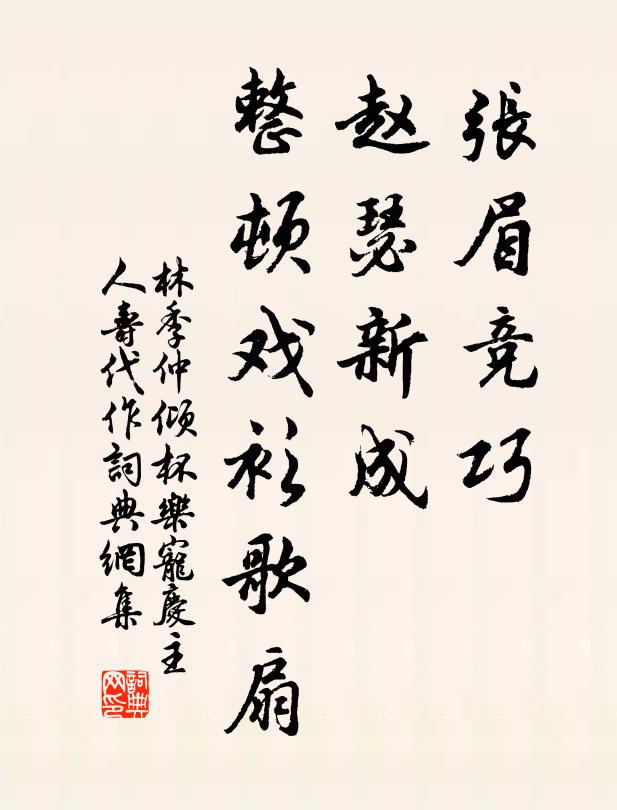 張眉竞巧
赵瑟新成
整顿戏衫歌扇
林季仲倾杯樂寵慶主
人壽代作詞典網集
詞典网印